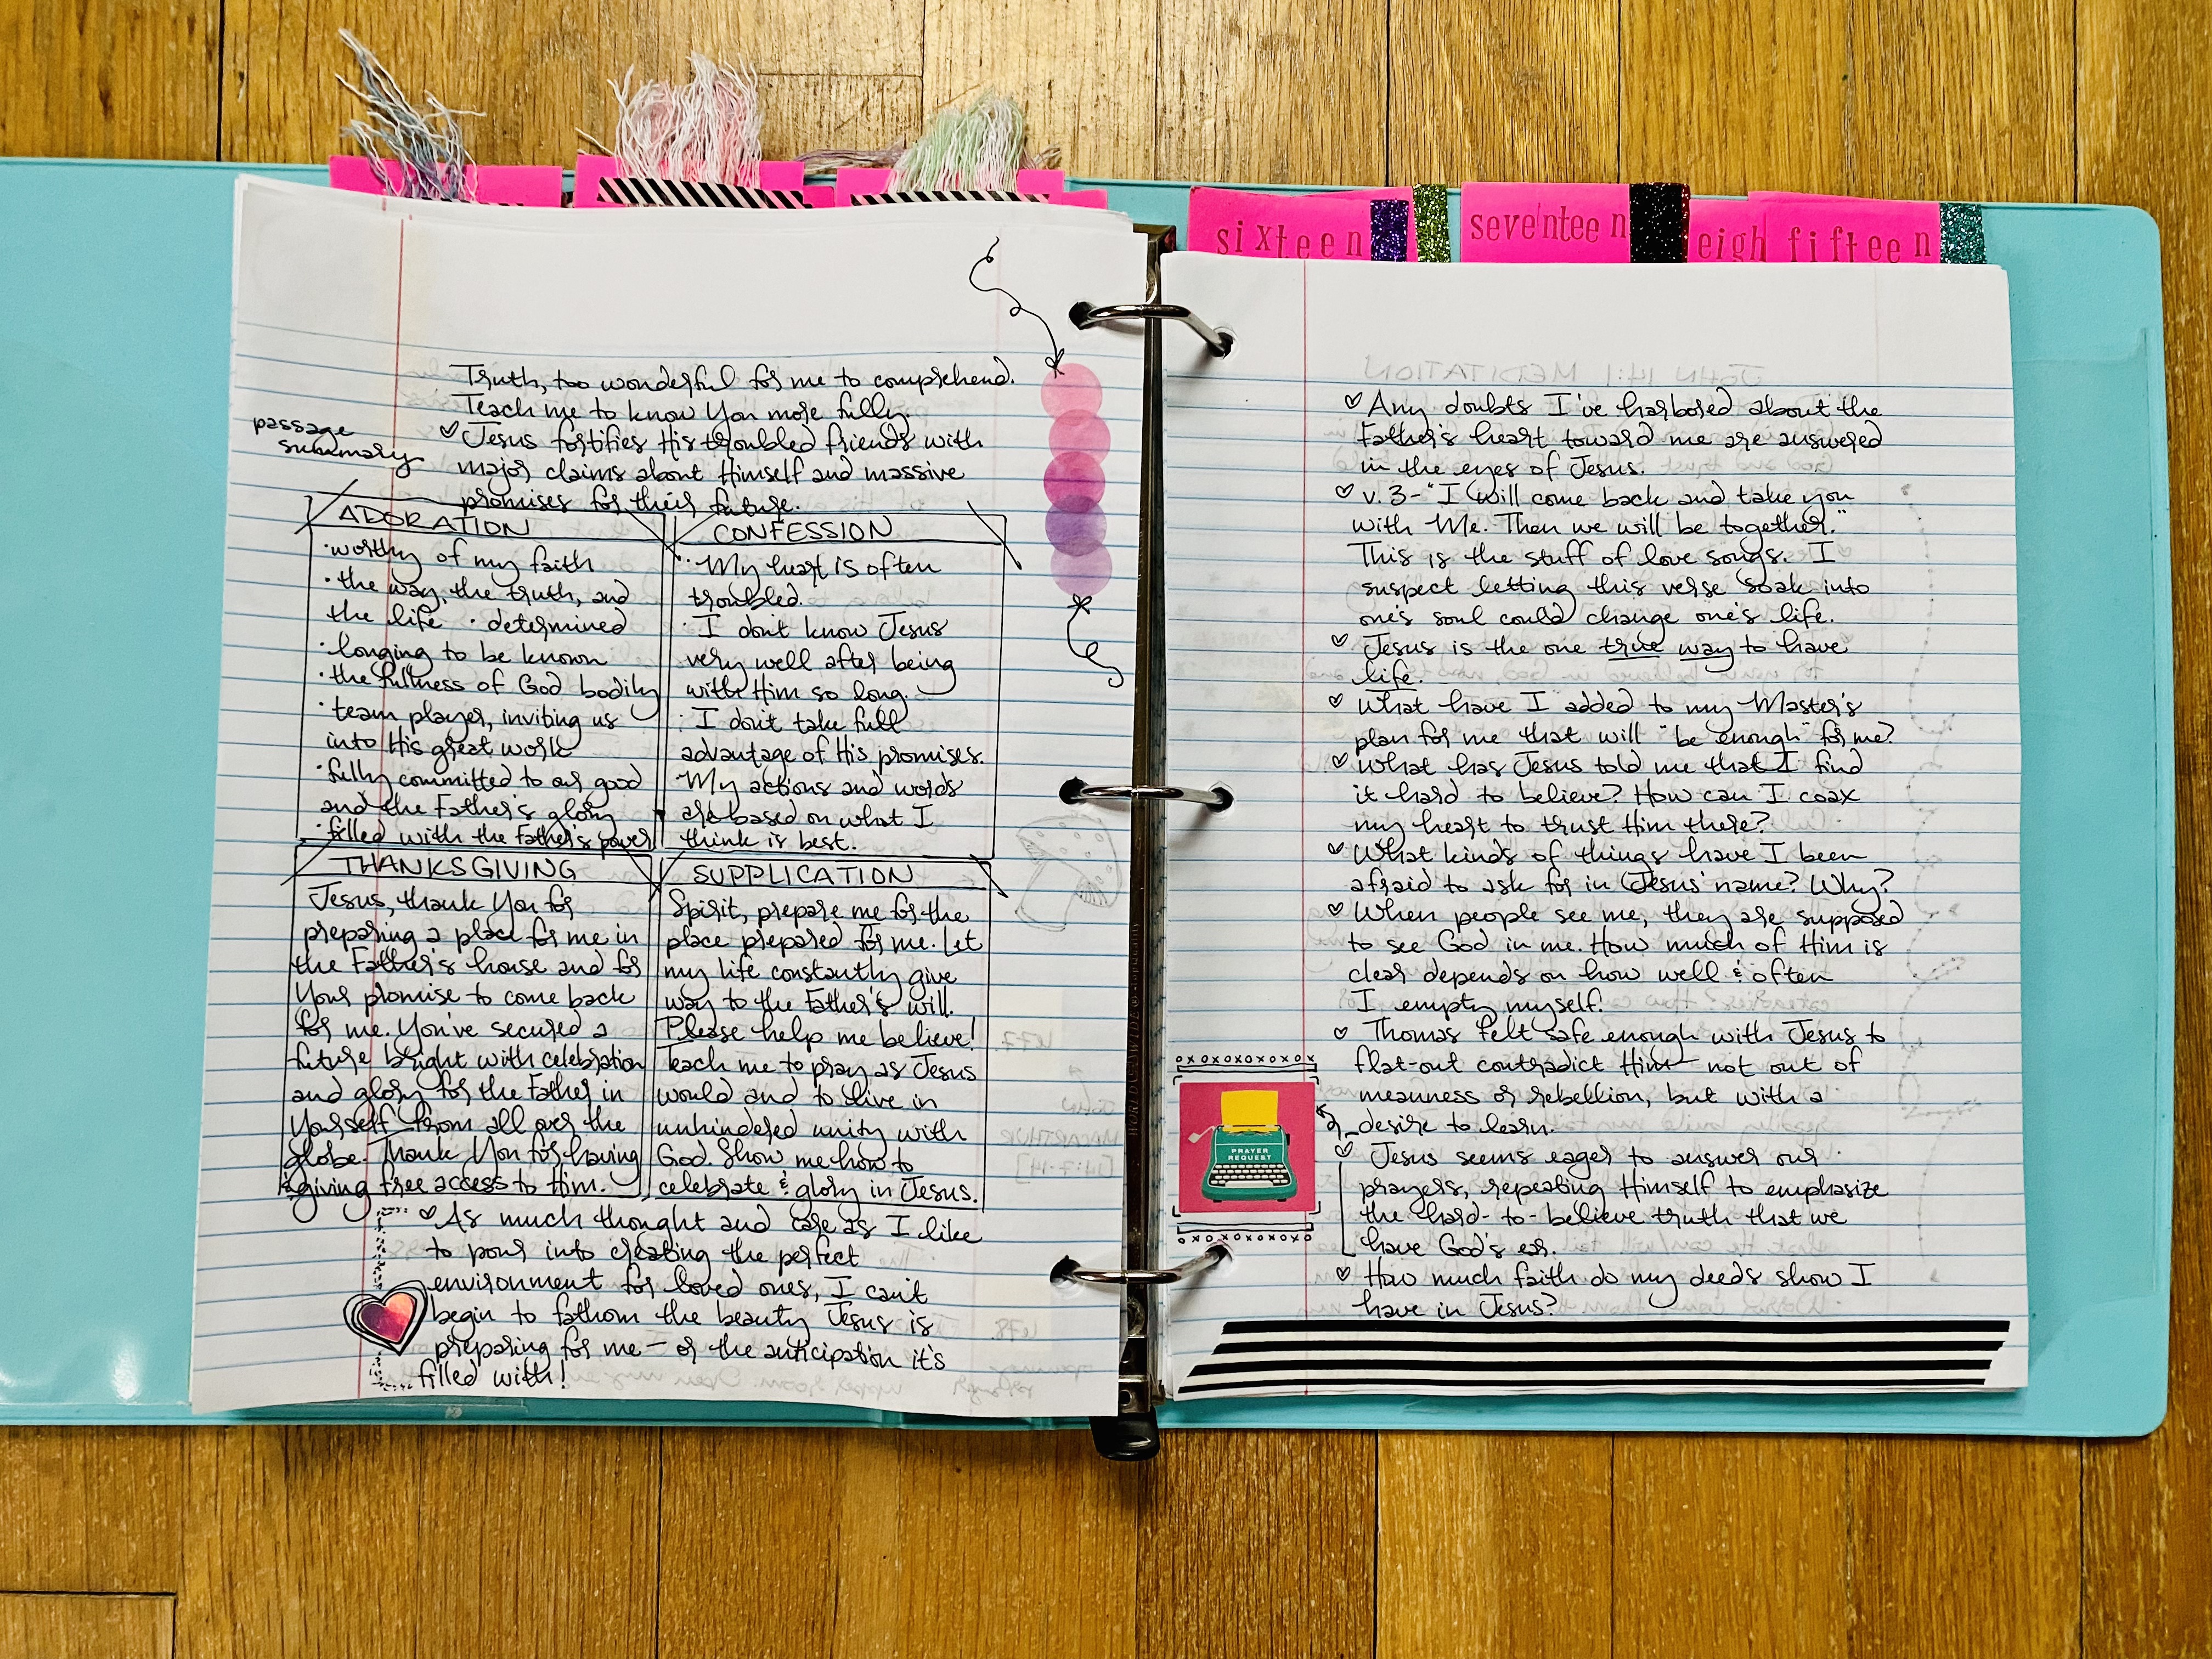 sixteen
seventeen
eigh
fifteen
Truth, too wonderful for me to comprehend.
Teach me to know You more fully.
passage
summary
Jesus fortifies His troubled friends with
major claims about Himself and massive
promises for their future.
ADORATION
·worthy of my faith
·the way, the truth, and
the life ·determined
·longing to be known
·the fullness of God bodily
·team player, inviting us
into His great work
·fully committed to our good
and the Father's glory
·filled with the Father's power
CONFESSION
·My heart is often
troubled.
·I don't know Jesus
very well after being
with Him so long.
·I don't take full
advantage of His promises.
·My actions and words
are based on what I
think is best.
THANKSGIVING
Jesus, thank You for
preparing a place for me in
the Father's house and for
Your promise to come back
for me. You've secured a
future bright with celebration
and glory for the Father in
Yourself from all over the
globe. Thank You for having
& giving free access to Him.
SUPPLICATION
Spirit, prepare me for the
place prepared for me. Let
my life constantly give
way to the Father's will.
Please help me believe!
Teach me to pray as Jesus
would and to live in
unhindered unity with
God. Show me how to
celebrate & glory in Jesus.
As much thought and care as I like
to pour into creating the perfect
environment for loved ones, I can't
begin to fathom the beauty Jesus is
preparing for me — or the anticipation it's
filled with!
Any doubts I've harbored about the
Father's heart toward me are answered
in the eyes of Jesus.
v. 3 - "I will come back and take you
with Me. Then we will be together."
This is the stuff of love songs. I
suspect letting this verse soak into
one's soul could change one's life.
Jesus is the one true way to have
life.
What have I added to my Master's
plan for me that will "be enough" for me?
What has Jesus told me that I find
it hard to believe? How can I coax
my heart to trust Him there?
What kinds of things have I been
afraid to ask for in Jesus' name? Why?
When people see me, they are supposed
to see God in me. How much of Him is
clear depends on how well & often
I empty myself.
Thomas felt safe enough with Jesus to
flat-out contradict Him – not out of
meanness or rebellion, but with a
desire to learn.
Jesus seems eager to answer our
prayers, repeating Himself to emphasize
the hard-to-believe truth that we
have God's ear.
How much faith do my deeds show I
have in Jesus?
oxoxoxoxoxoxox
PRAYER
REQUEST
xoxoxoxoxoxoxo